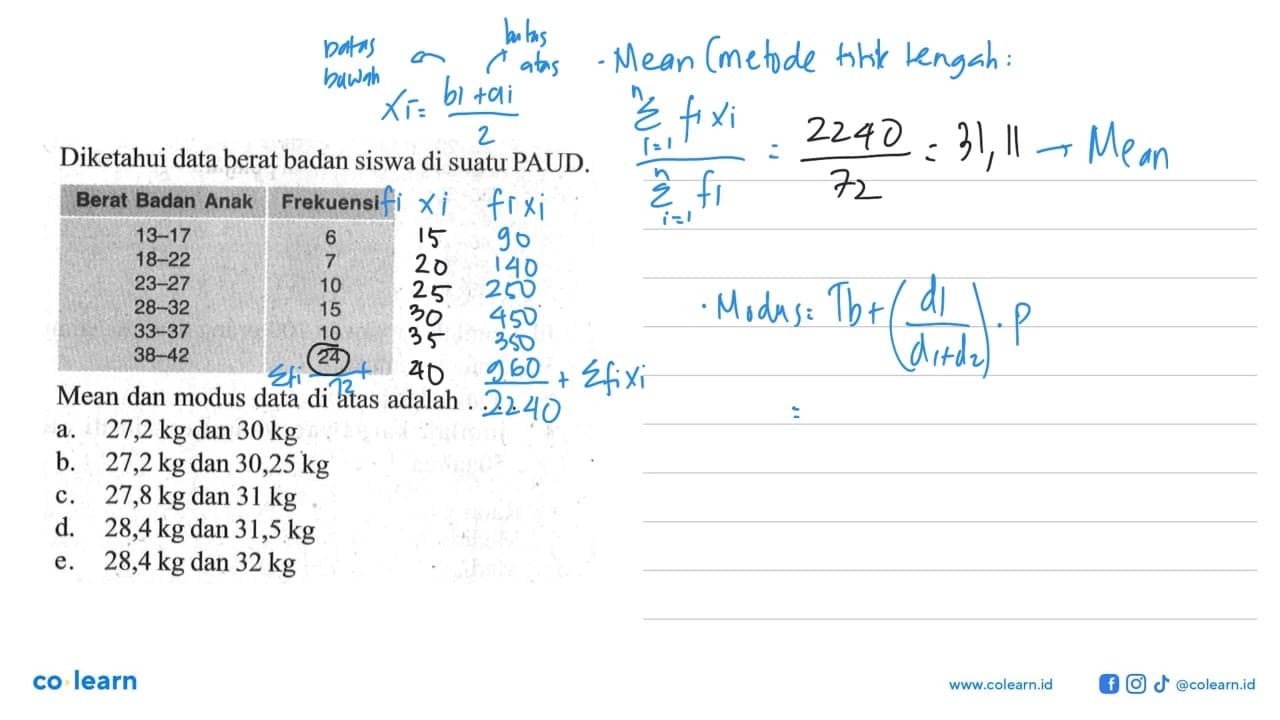 batas bawah
batas atas
xi = bi + ai / 2
· Mean (metode titik tengah:
n Σ i=1 fi xi / n Σ i=1 fi = 2240 / 72 = 31,11 → Mean
Diketahui data berat badan siswa di suatu PAUD.
Berat Badan Anak Frekuensi fi xi fi xi
13–17 6 15 90
18–22 7 20 140
23–27 10 25 250
28–32 15 30 450
33–37 10 35 350
38–42 24 40 960 +
Σfi 72 + 2240 Σfi xi
· Modus = Tb + (d1 / d1+d2) . p
=
Mean dan modus data di atas adalah . . . .
a. 27,2 kg dan 30 kg
b. 27,2 kg dan 30,25 kg
c. 27,8 kg dan 31 kg
d. 28,4 kg dan 31,5 kg
e. 28,4 kg dan 32 kg
co learn
www.colearn.id
@colearn.id